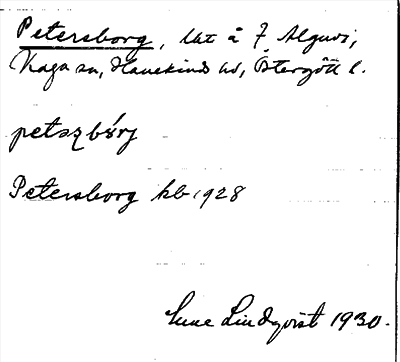 Petersborg, lht å 7 Alguvi,
Kaga sn, Hanekinds hd, Östergötl l.
petszbórj
Petersborg kb 1928
Sune Lindqvist 1930.